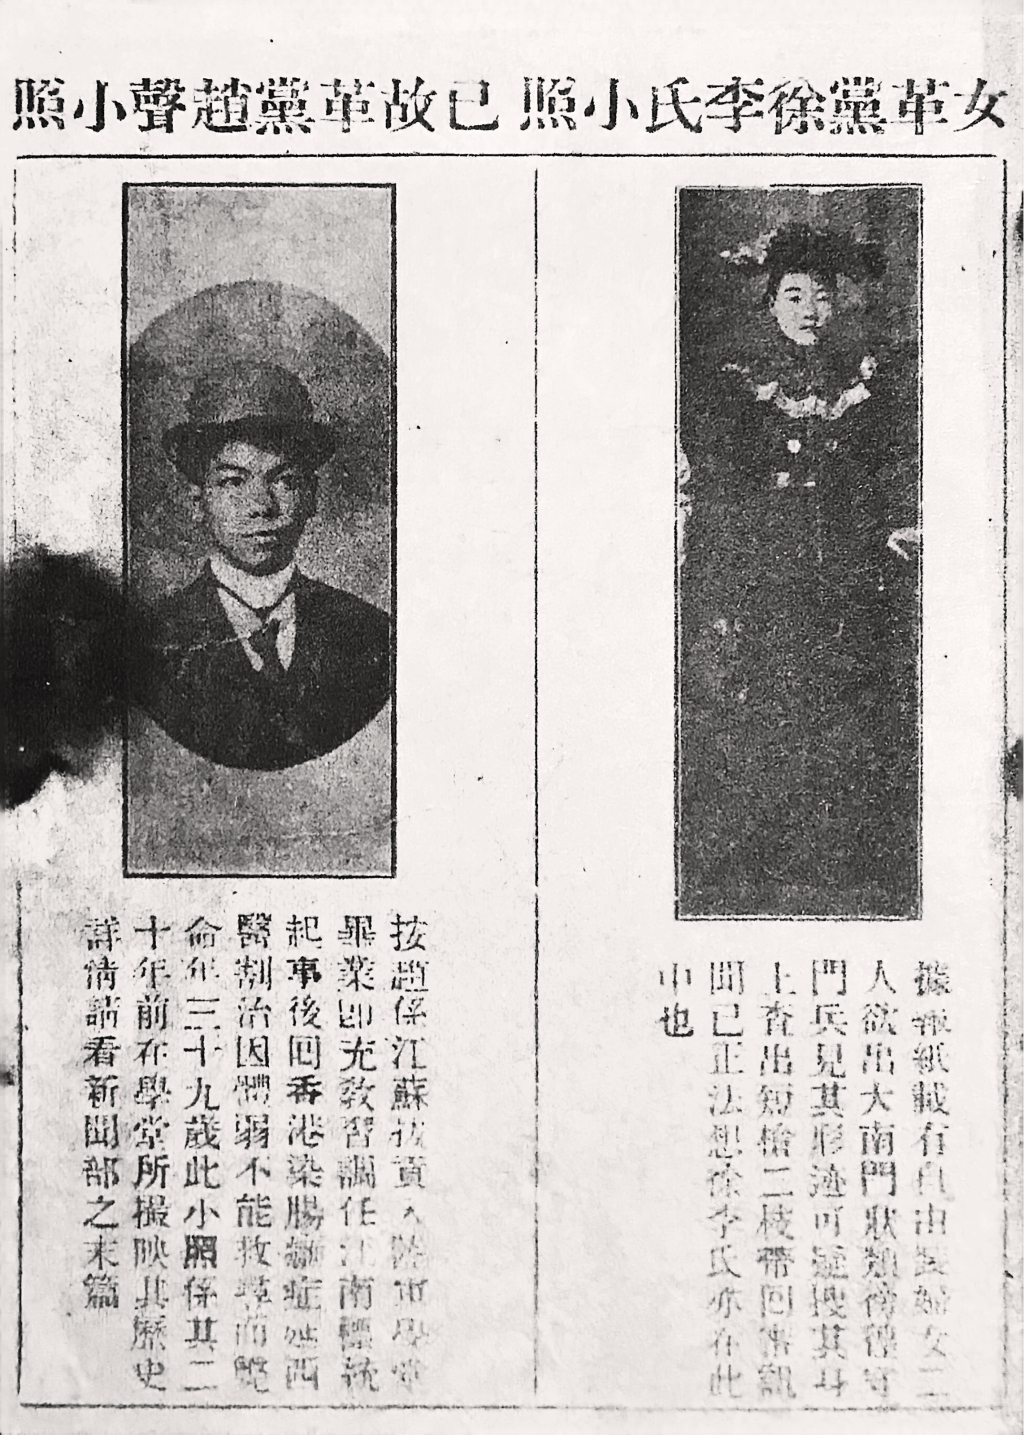 女革黨徐李氏小照
據報紙載有自由裝婦女二
人欲出大南門狀類徬徨守
門兵見其形迹可疑搜其身
上查出短槍二枝帶回審訊
聞已正法想徐李氏亦在此
中也
已故革黨趙聲小照
按趙係江蘇拔貢入陸軍學堂
畢業即充教習調任江南標統
起事後回香港染腸癰症延西
醫割治因體弱不能救尋而斃
命年三十九歲此小照係其二
十年前在學堂所撮映其歷史
詳情請看新聞部之末篇